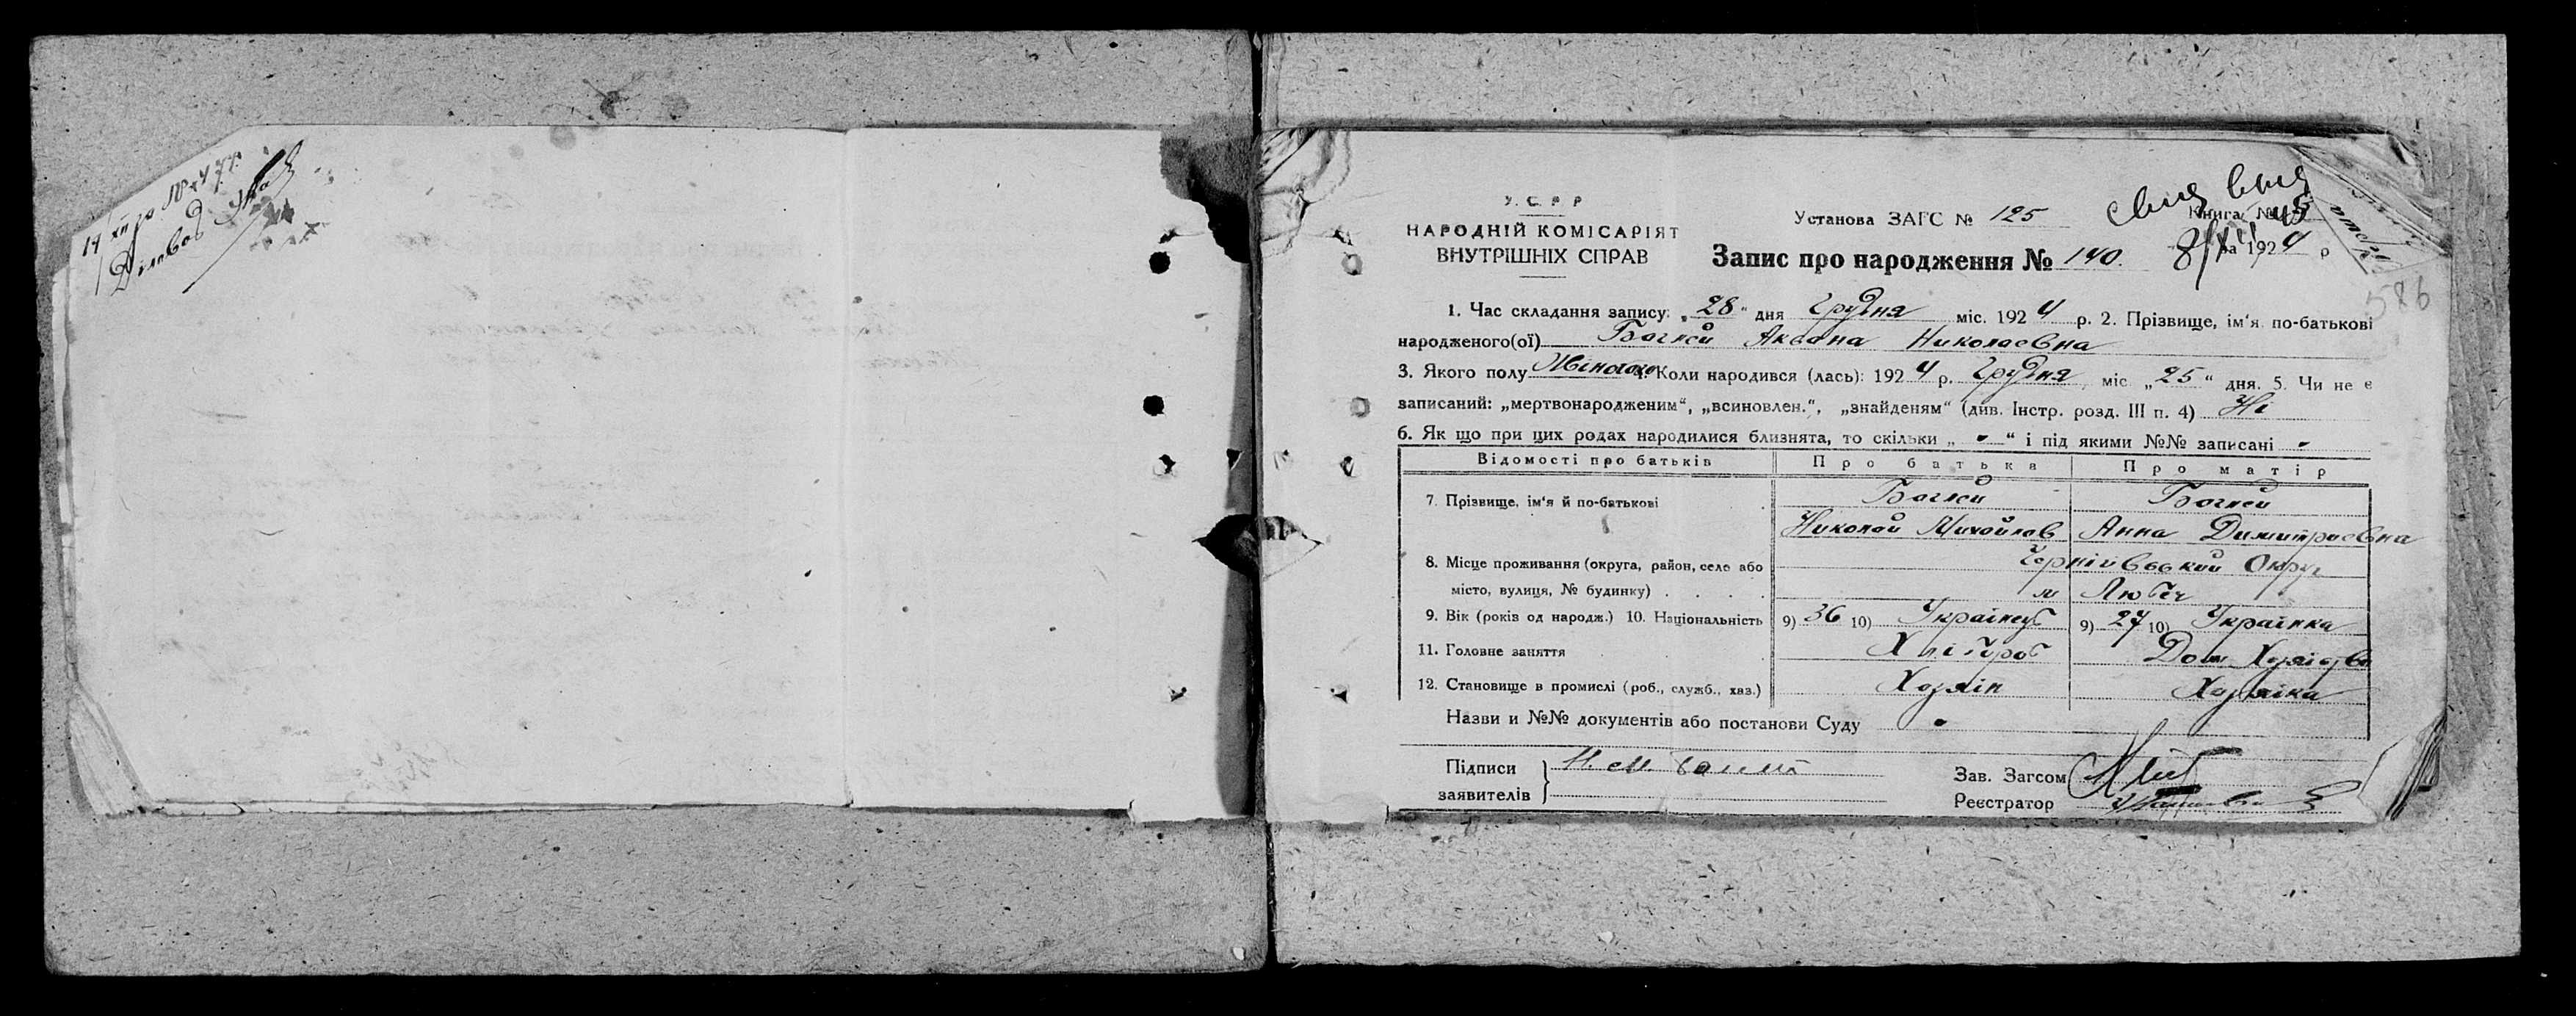 У. С. Р. Р
НАРОДНІЙ КОМІСАРІЯТ
ВНУТРІШНІХ СПРАВ
Установа ЗАГС № 125
Книга №
Запис про народження № 140.
за 1924 р
586
1. Час складання запису: „28“ дня Грудня міс. 1924 р. 2. Прізвище, ім‘я по-батькові
народженого(ої) Баглей Аксана Николаевна
3. Якого полу Жіночого 4. Коли народився (лась): 1924 р. Грудня міс „25“ дня. 5. Чи не є
записаний: „мертвонародженим“, „всиновлен.“, „знайденям“ (див. Інстр. розд. III п. 4) Ні
6. Як що при цих родах народилися близнята, то скільки „ - “ і під якими №№ записані -
Відомості про батьків Про батька Про матір
7. Прізвище, ім‘я й по-батькові Баглей Баглей
Николай Михайлов Анна Димитриевна
8. Місце проживання (округа, район, село або Чернігівський Округ
місто, вулиця, № будинку) . . . . м Любеч
9. Вік (років од народж.) 10. Національність 9) 36 10) Українець 9) 27 10) Українка
11. Головне заняття Хлібороб Дом
12. Становище в промислі (роб., служб., хаз.) Хазяін Хазяіка
Назви и №№ документів або постанови Суду
Підписи
заявителів
Зав. Загсом
Реєстратор